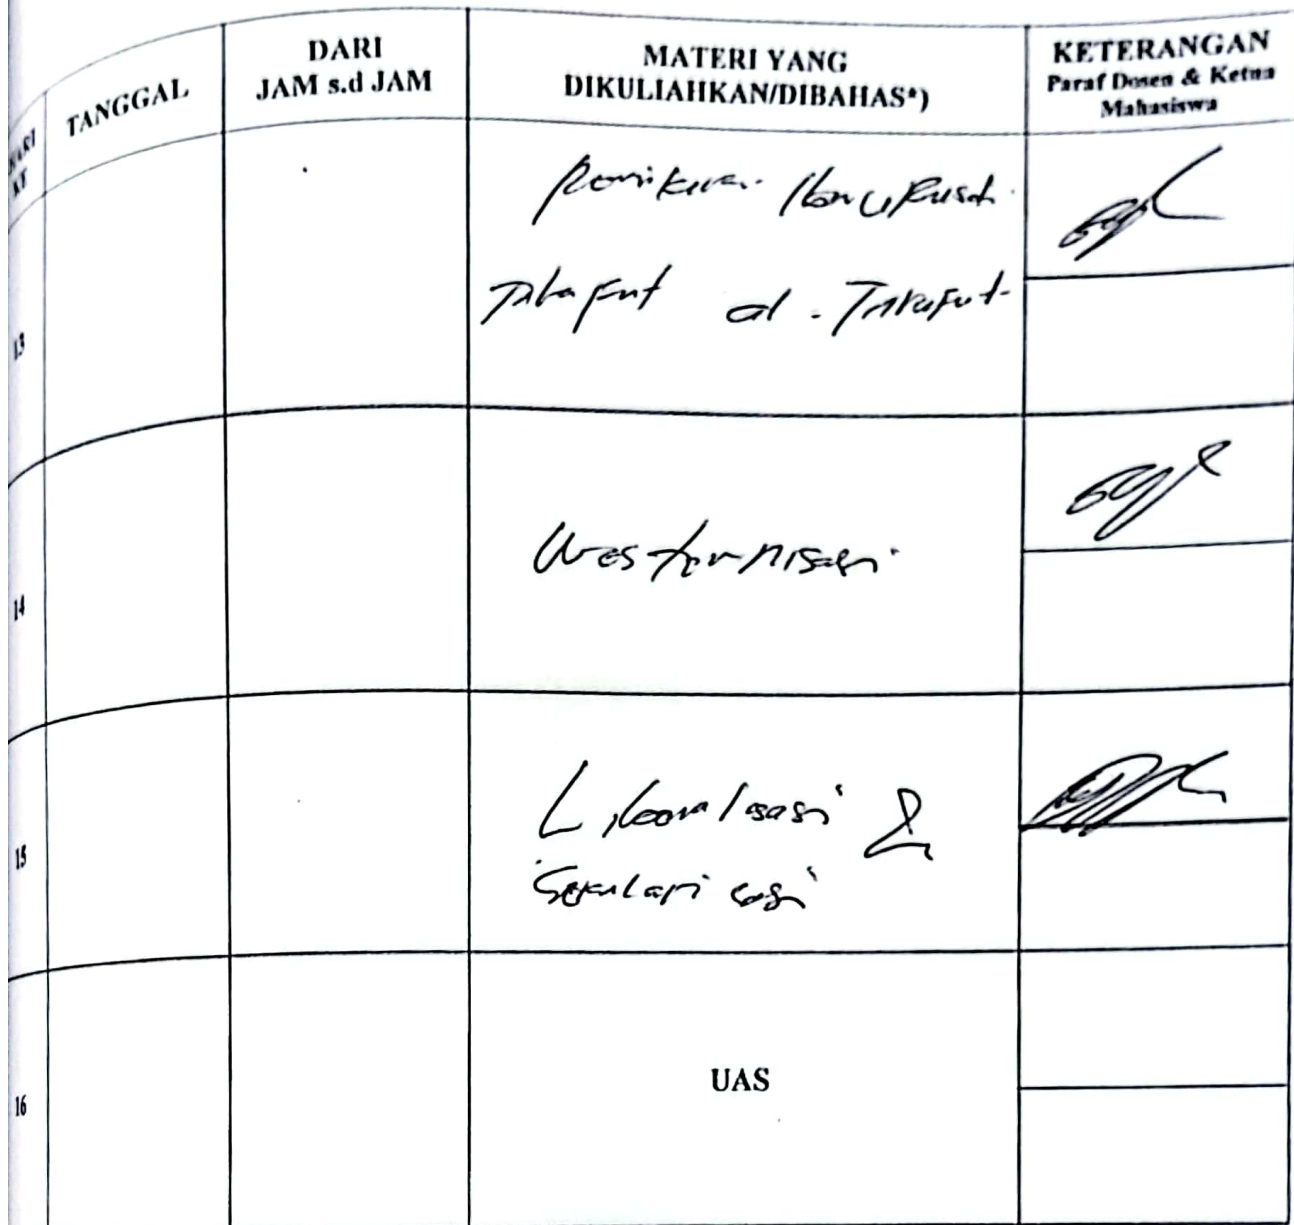 HARI KE
TANGGAL
DARI
JAM s.d JAM
MATERI YANG
DIKULIAHKAN/DIBAHAS*)
KETERANGAN
Paraf Dosen & Ketua
Mahasiswa
13
Pemikiran Ibnu Rusd
Tahafut al-Tahafut
14
Westernisasi
15
Liberalisasi &
Sekularisasi
16
UAS